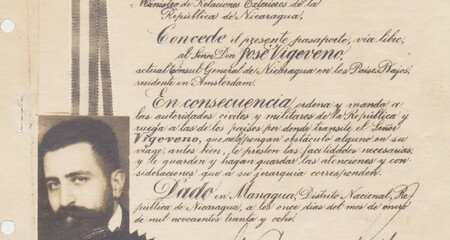 Ministro de Relaciones Exteriores de la
República de Nicaragua,
Concede el presente pasaporte, vía libre,
al Señor Don José Vigeveno,
actual Cónsul General de Nicaragua en los Países Bajos,
residente en Amsterdam.
En consecuencia, ordena y manda a
las autoridades civiles y militares de la República y
ruega a las de los países por donde transite el Señor
Vigoveno, que no pongan obstáculo alguno en su
viaje; antes bien, le presten las facilidades necesarias,
y le guarden y hagan guardar las atenciones y con-
sideraciones que a su jerarquía corresponden.
Dado en Managua, Distrito Nacional, Re-
pública de Nicaragua, a los once días del mes de enero
de mil novecientos treinta y ocho.